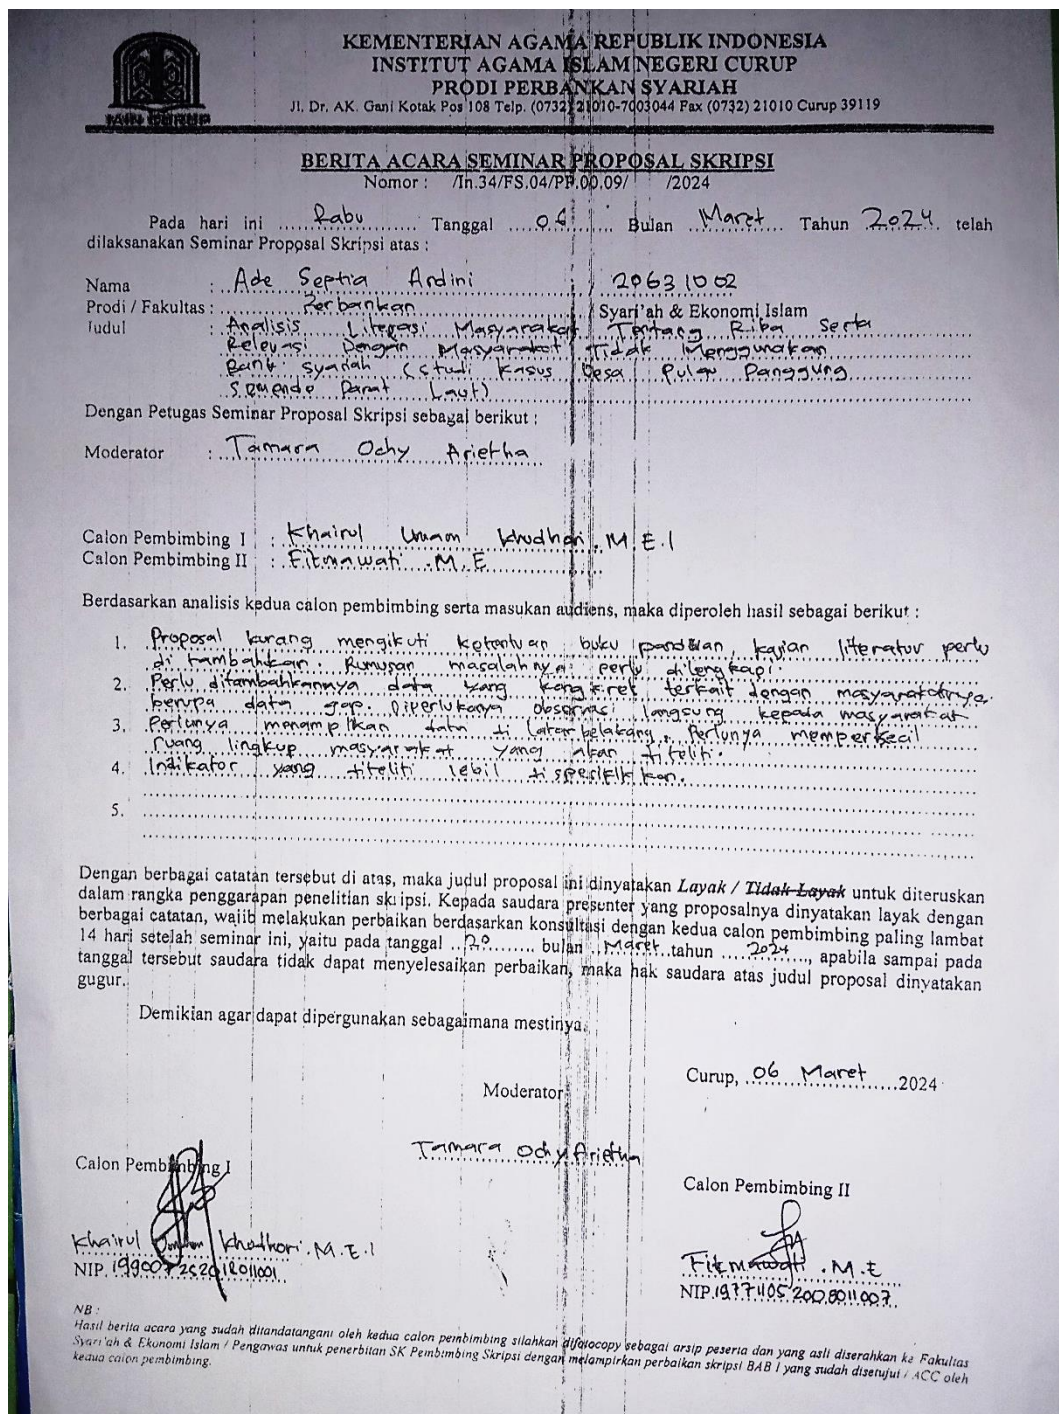 KEMENTERIAN AGAMA REPUBLIK INDONESIA
INSTITUT AGAMA ISLAM NEGERI CURUP
PRODI PERBANKAN SYARIAH
Jl. Dr. AK. Gani Kotak Pos 108 Telp. (0732) 21010-7003044 Fax (0732) 21010 Curup 39119
IAIN CURUP
BERITA ACARA SEMINAR PROPOSAL SKRIPSI
Nomor : /In.34/FS.04/PP.00.09/ /2024
Pada hari ini Rabu Tanggal 06 Bulan Maret Tahun 2024 telah
dilaksanakan Seminar Proposal Skripsi atas :
Nama : Ade Septia Ardini / 20631002
Prodi / Fakultas : Perbankan / Syari'ah & Ekonomi Islam
Judul : Analisis Literasi Masyarakat Tentang Riba Serta
Relevasi Dengan Masyarakat Tidak Menggunakan
Bank Syariah (Studi Kasus Desa Pulau Panggung
Semende Darat Laut)
Dengan Petugas Seminar Proposal Skripsi sebagai berikut :
Moderator : Tamara Ochy Arietha
Calon Pembimbing I : Khairul Umam Khudhori. M.E.I
Calon Pembimbing II : Fitmawati .M.E
Berdasarkan analisis kedua calon pembimbing serta masukan audiens, maka diperoleh hasil sebagai berikut :
1. Proposal kurang mengikuti ketentuan buku panduan, kajian literatur perlu
di tambahkan. Rumusan masalahnya perlu dilengkapi.
2. Perlu ditambahkannya data yang kongkret terkait dengan masyarakatnya
berupa data gap. Diperlukanya observasi langsung kepada masyarakat
3. Perlunya menampilkan data di latar belakang. Perlunya memperkecil
ruang lingkup masyarakat yang akan diteliti.
4. Indikator yang diteliti lebih dispesifikkan.
5.
Dengan berbagai catatan tersebut di atas, maka judul proposal ini dinyatakan Layak / Tidak Layak untuk diteruskan
dalam rangka penggarapan penelitian skripsi. Kepada saudara presenter yang proposalnya dinyatakan layak dengan
berbagai catatan, wajib melakukan perbaikan berdasarkan konsultasi dengan kedua calon pembimbing paling lambat
14 hari setelah seminar ini, yaitu pada tanggal 20 bulan Maret tahun 2024, apabila sampai pada
tanggal tersebut saudara tidak dapat menyelesaikan perbaikan, maka hak saudara atas judul proposal dinyatakan
gugur.
Demikian agar dapat dipergunakan sebagaimana mestinya.
Curup, 06 Maret 2024
Moderator
Tamara Ochy Arietha
Calon Pembimbing I
Calon Pembimbing II
Khairul Umam Khudhori. M.E.I
NIP. 199007252018011001
Fitmawati .M.E
NIP.
NB :
Hasil berita acara yang sudah ditandatangani oleh kedua calon pembimbing silahkan difotocopy sebagai arsip peserta dan yang asli diserahkan ke Fakultas
Syari'ah & Ekonomi Islam / Pengawas untuk penerbitan SK Pembimbing Skripsi dengan melampirkan perbaikan skripsi BAB I yang sudah disetujui / ACC oleh
kedua calon pembimbing.